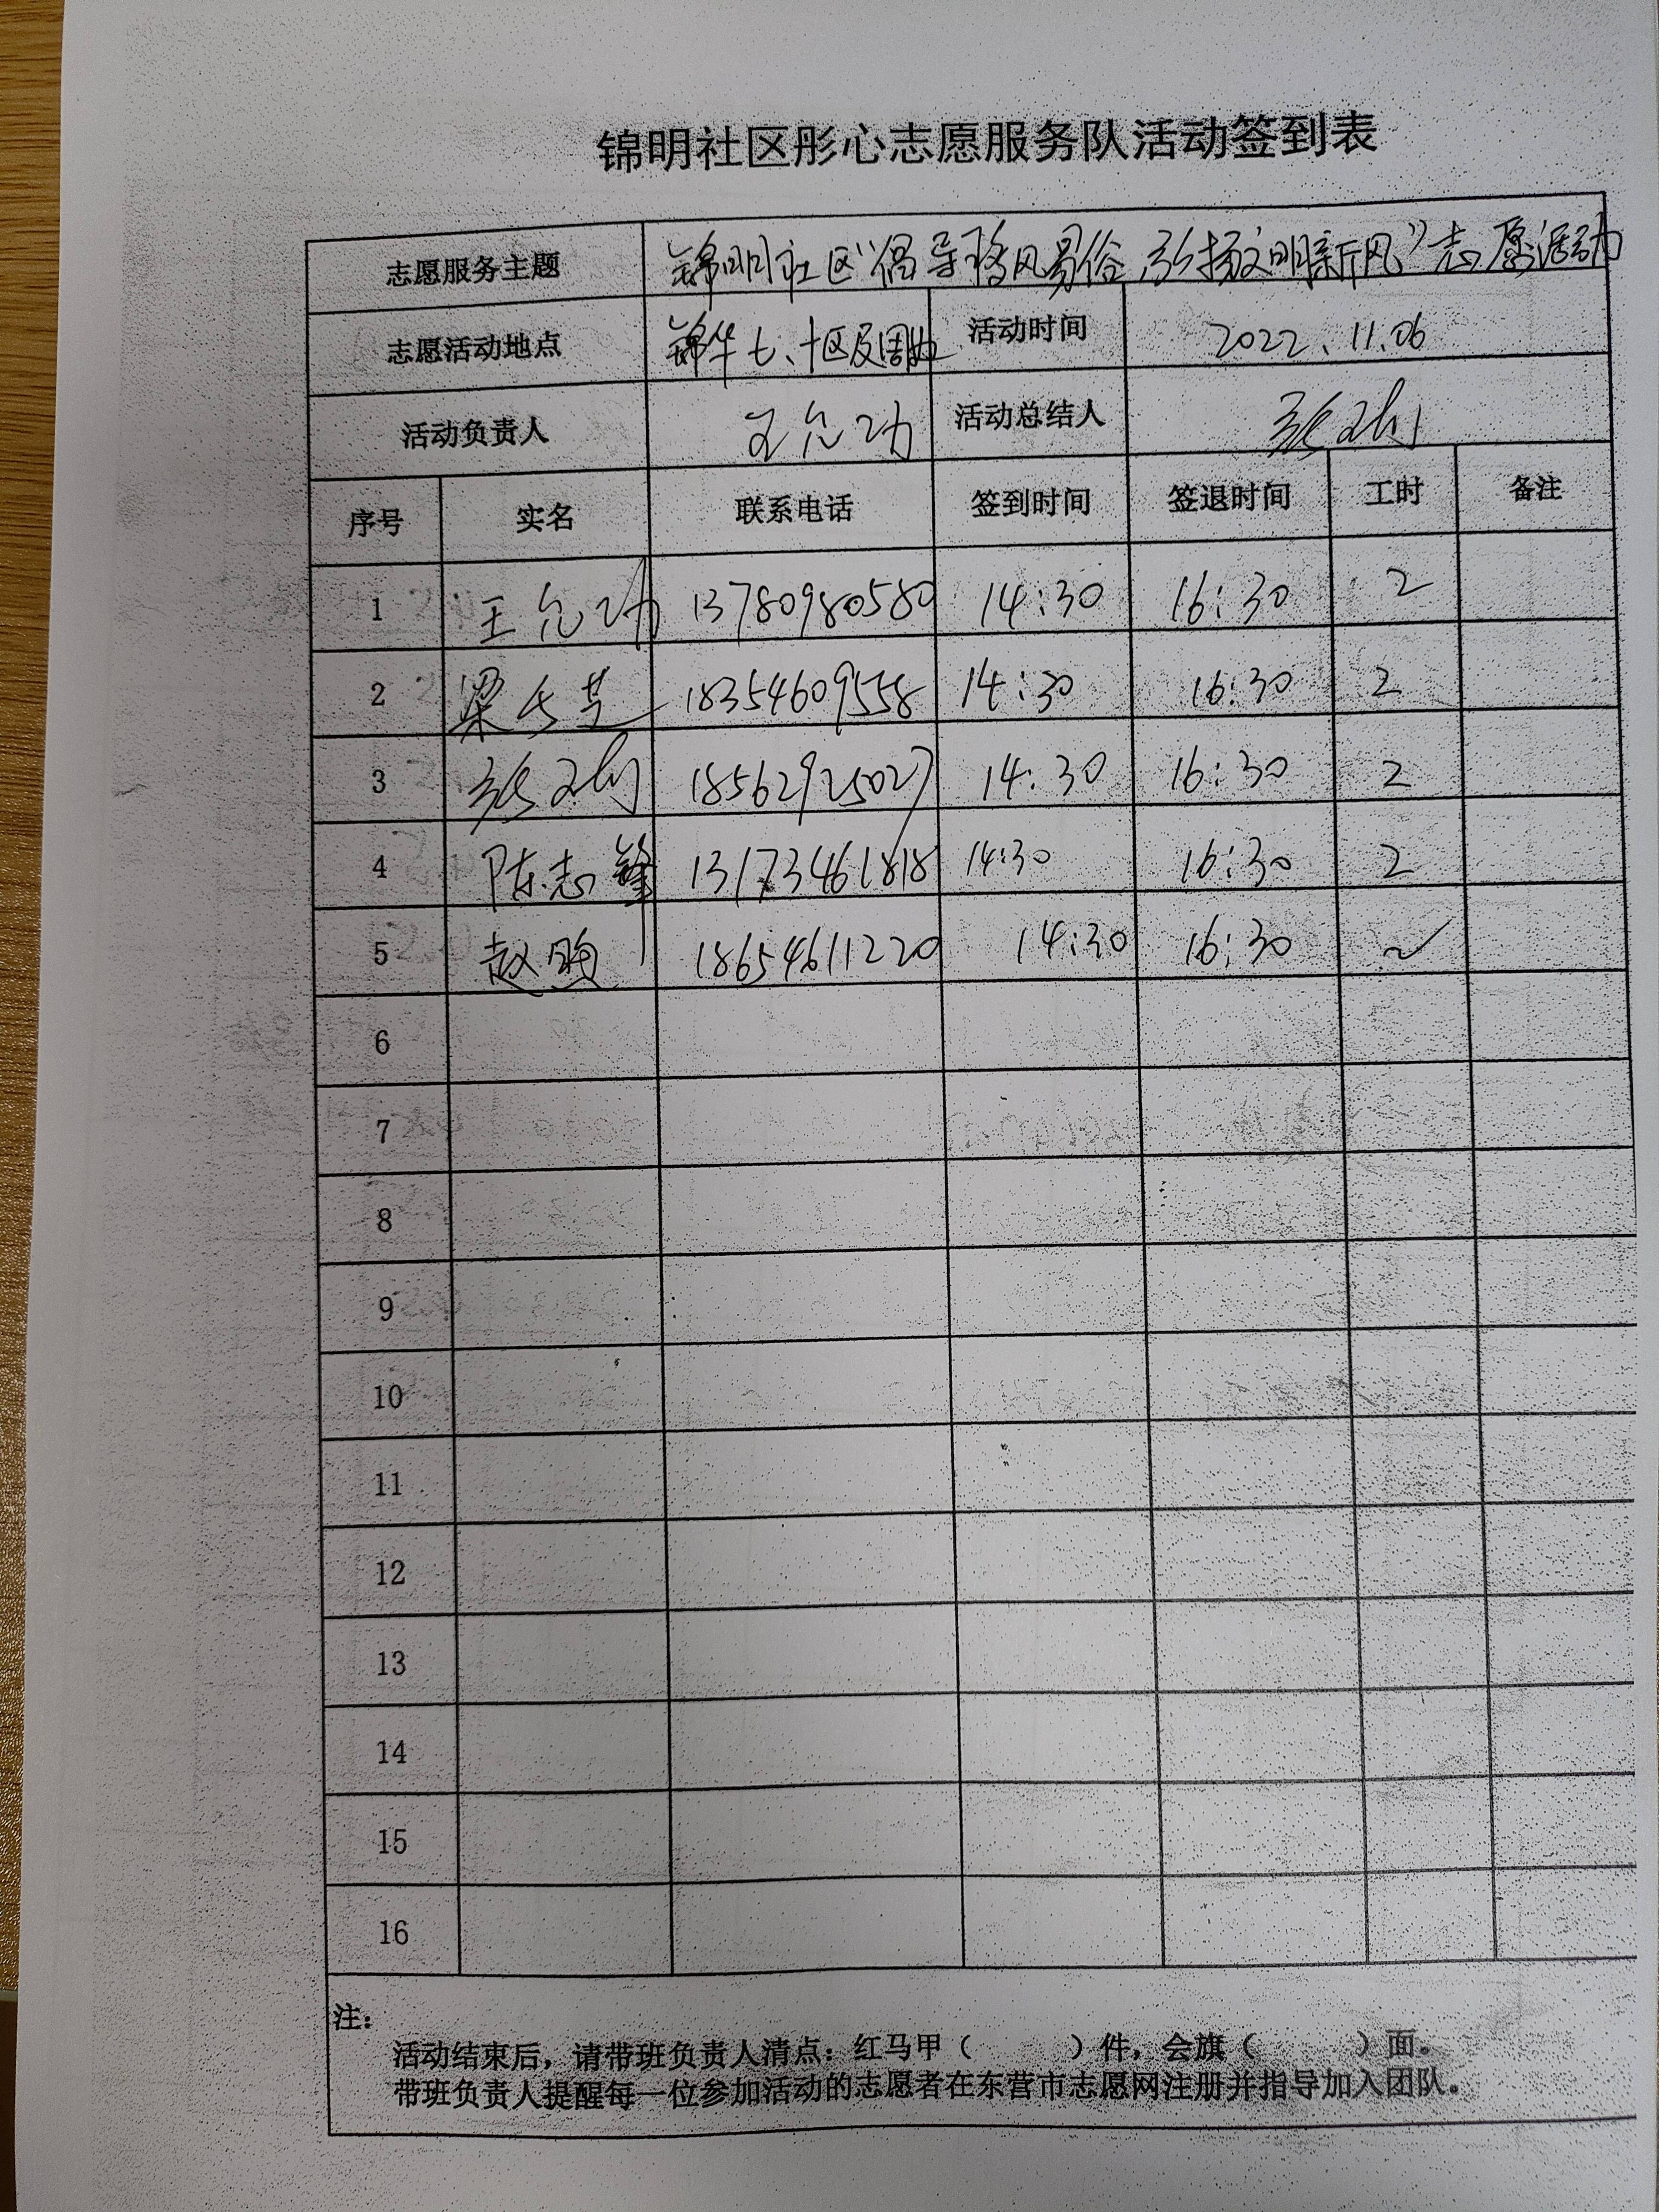 锦明社区彤心志愿服务队活动签到表
志愿服务主题 锦明社区“倡导移风易俗,弘扬文明新风”志愿活动
志愿活动地点 锦华七、十区及周边 活动时间 2022.11.06
活动负责人 王允功 活动总结人 张
序号 实名 联系电话 签到时间 签退时间 工时 备注
1 王允功 13780980580 14:30 16:30 2
2 梁 18354609558 14:30 16:30 2
3 张 18562925027 14:30 16:30 2
4 陈志锋 13173461818 14:30 16:30 2
5 赵 18654611220 14:30 16:30 2
6
7
8
9
10
11
12
13
14
15
16
注:
活动结束后,请带班负责人清点:红马甲( )件,会旗( )面。
带班负责人提醒每一位参加活动的志愿者在东营市志愿网注册并指导加入团队。